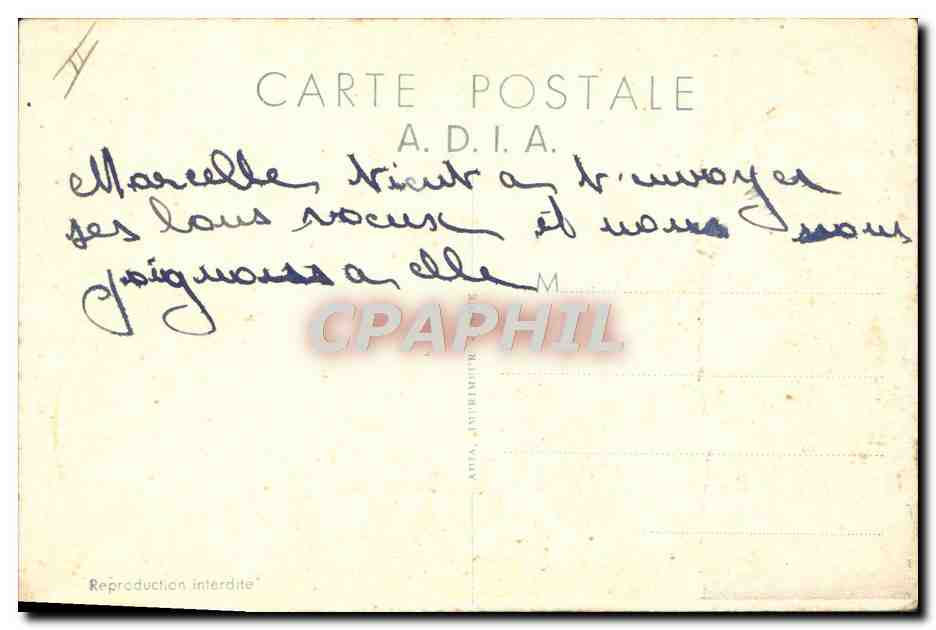 II
CARTE POSTALE
A. D. I. A.
Marcelle, vient a t'envoyer
ses bons voeux et nous nous
joignons a elle
M
CPAPHIL
ADIA, IMPRIMEUR
Reproduction interdite